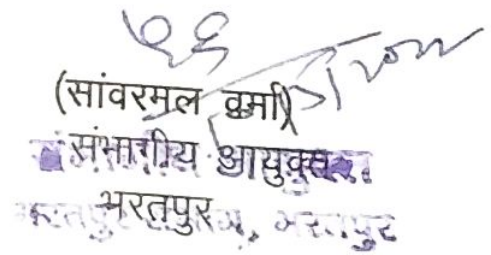 (सांवरमल वर्मा)
संभागीय आयुक्त
भरतपुर
भरतपुर